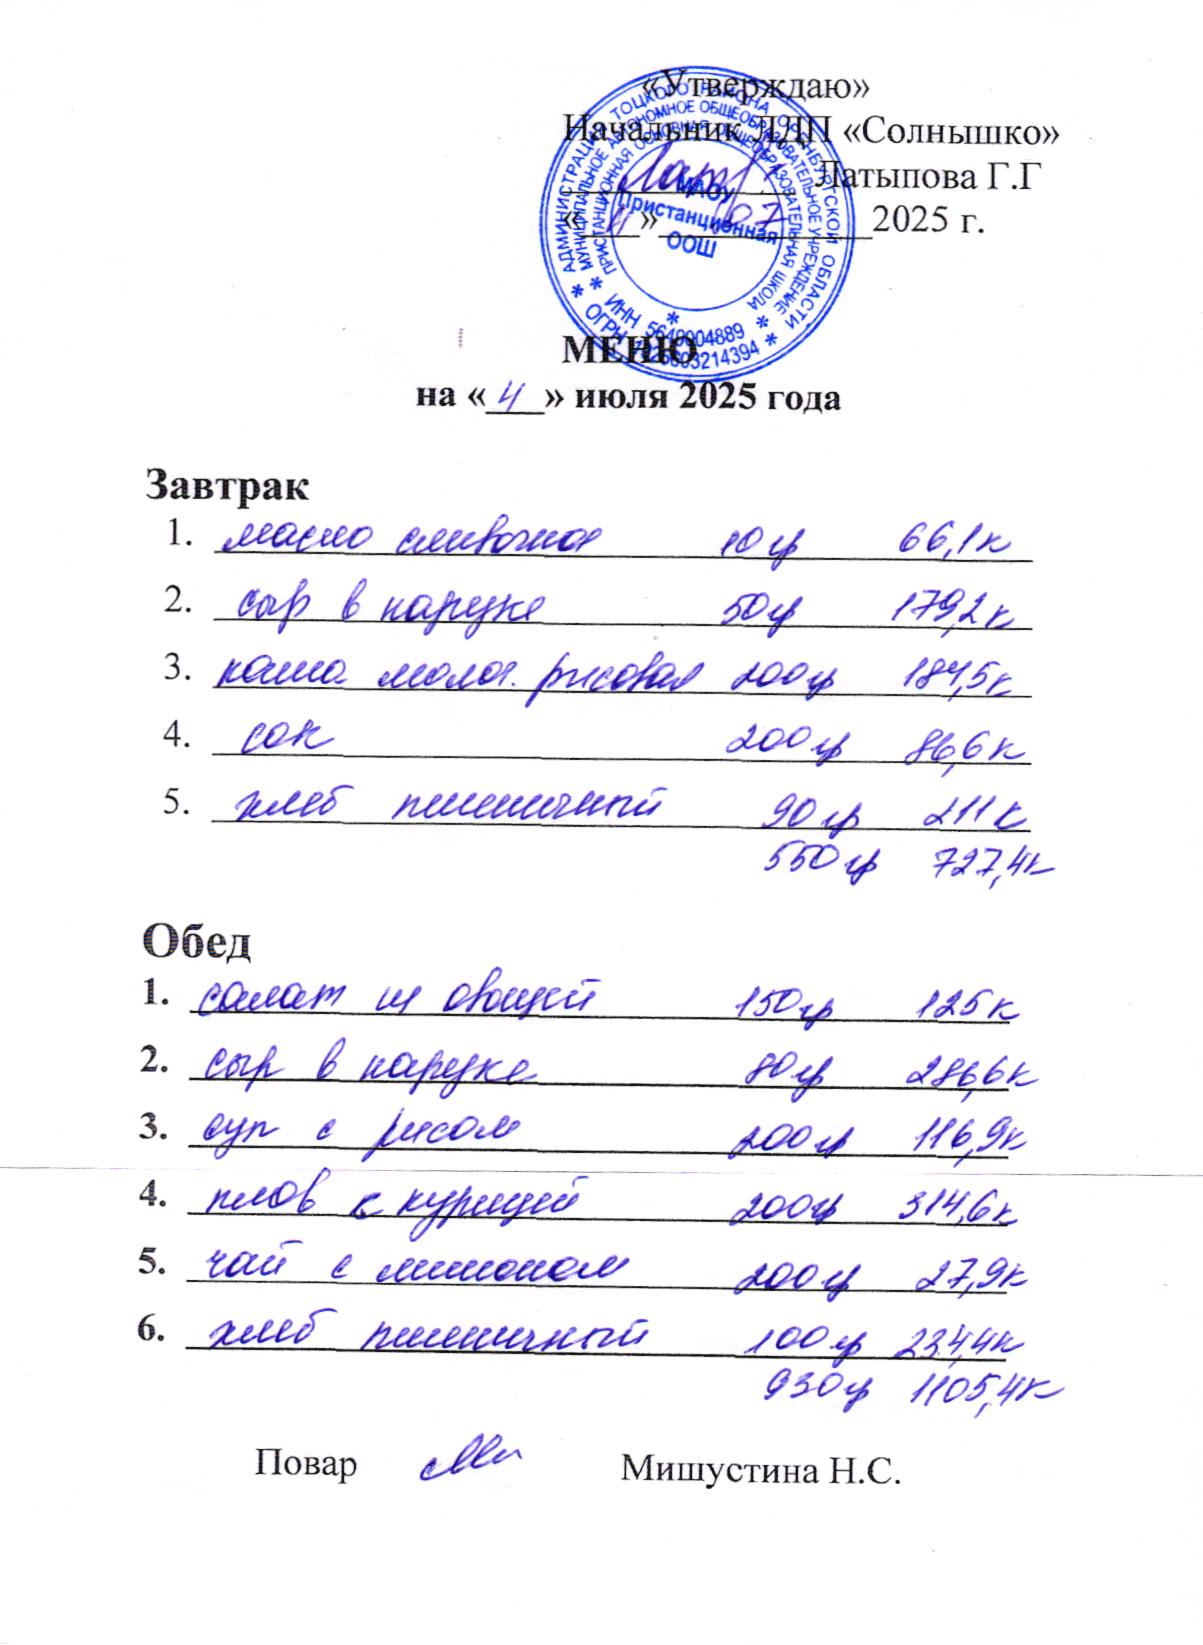 «Утверждаю»
Начальник ЛДП «Солнышко»
Латыпова Г.Г
«4» 07 2025 г.
АДМИНИСТРАЦИЯ ТОЦКОГО РАЙОНА ОРЕНБУРГСКОЙ ОБЛАСТИ
МУНИЦИПАЛЬНОЕ АВТОНОМНОЕ ОБЩЕОБРАЗОВАТЕЛЬНОЕ УЧРЕЖДЕНИЕ
ПРИСТАНЦИОННАЯ ОСНОВНАЯ ОБЩЕОБРАЗОВАТЕЛЬНАЯ ШКОЛА
МАОУ
Пристанционная
ООШ
ИНН 5649004889
ОГРН
МЕНЮ
на «4» июля 2025 года
Завтрак
1. масло сливочное 10 гр 66,1 к
2. сыр в нарезке 50 гр 179,2 к
3. каша молоч. рисовая 200 гр 184,5 к
4. сок 200 гр 86,6 к
5. хлеб пшеничный 90 гр 211 к
550 гр 727,4 к
Обед
1. салат из овощей 150 гр 125 к
2. сыр в нарезке 80 гр 286,6 к
3. суп с рисом 200 гр 116,9 к
4. плов с курицей 200 гр 314,6 к
5. чай с лимоном 200 гр 27,9 к
6. хлеб пшеничный 100 гр 234,4 к
930 гр 1105,4 к
Повар Мишустина Н.С.